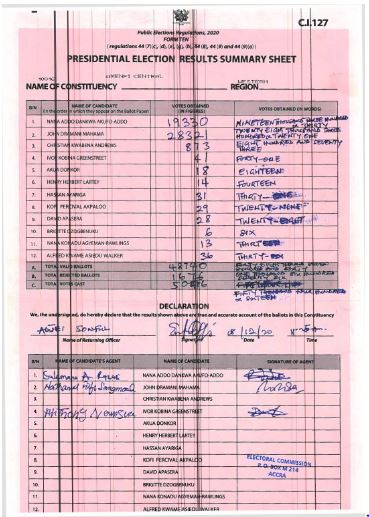 C.I.127
Public Elections Regulations, 2020
FORM TEN
(regulations 44 (7)(c), (d), (e), (g), (h), 44 (8), 44 (9) and 44 (9)(a))
PRESIDENTIAL ELECTION RESULTS SUMMARY SHEET
CENTRAL WESTERN
NAME OF CONSTITUENCY REGION
S/N NAME OF CANDIDATE VOTES OBTAINED VOTES OBTAINED (IN WORDS)
(In the order in which they appear on the Ballot Paper) (IN FIGURES)
1. NANA ADDO DANKWA AKUFO-ADDO 19330 NINETEEN THOUSAND THREE HUNDRED & THIRTY
2. JOHN DRAMANI MAHAMA 28321 TWENTY EIGHT THOUSAND THREE HUNDRED & TWENTY ONE
3. CHRISTIAN KWABENA ANDREWS 873 EIGHT HUNDRED AND SEVENTY THREE
4. IVOR KOBINA GREENSTREET 41 FORTY-ONE
5. AKUA DONKOR 18 EIGHTEEN
6. HENRY HERBERT LARTEY 14 FOURTEEN
7. HASSAN AYARIGA 31 THIRTY-ONE
8. KOFI PERCIVAL AKPALOO 29 TWENTY-NINE
9. DAVID APASERA 28 TWENTY-EIGHT
10. BRIGITTE DZOGBENUKU 6 SIX
11. NANA KONADU AGYEMAN-RAWLINGS 13
12. ALFRED KWAME ASIEDU WALKER 36 THIRTY-SIX
A. TOTAL VALID BALLOTS 48740
B. TOTAL REJECTED BALLOTS 1676
C. TOTAL VOTES CAST FIFTY THOUSAND FOUR HUNDRED & SIXTEEN
DECLARATION
We, the undersigned, do hereby declare that the results shown above are true and accurate account of the ballots in this Constituency
8/12/20
Name of Returning Officer Signature Date Time
S/N NAME OF CANDIDATE'S AGENT NAME OF CANDIDATE SIGNATURE OF AGENT
1. NANA ADDO DANKWA AKUFO-ADDO
2. JOHN DRAMANI MAHAMA
3. CHRISTIAN KWABENA ANDREWS
4. IVOR KOBINA GREENSTREET
5. AKUA DONKOR
6. HENRY HERBERT LARTEY
7. HASSAN AYARIGA
8. KOFI PERCIVAL AKPALOO
9. DAVID APASERA
10. BRIGITTE DZOGBENUKU
11. NANA KONADU AGYEMAN-RAWLINGS
12. ALFRED KWAME ASIEDU WALKER
ELECTORAL COMMISSION
P. O. BOX M 214
ACCRA